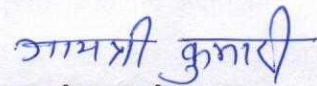 गायत्री कुमारी